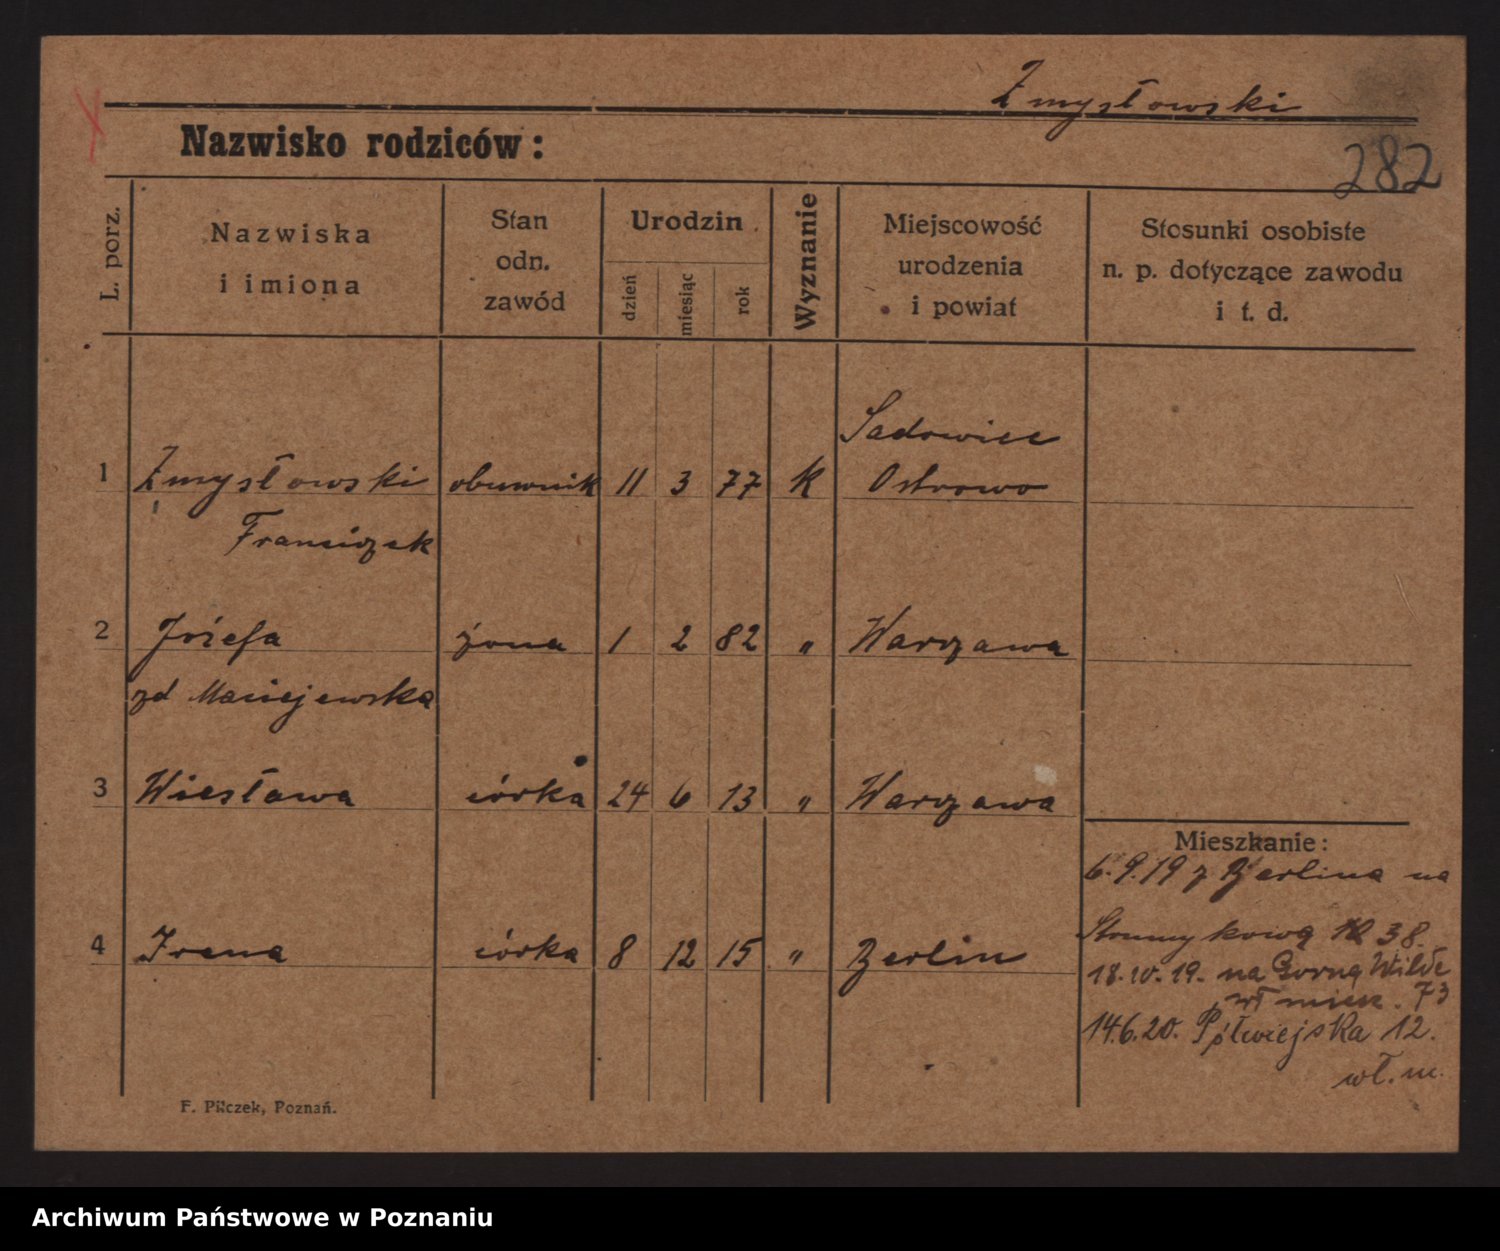 Zmysłowski
Nazwisko rodziców:
282
L. porz.
Nazwiska
i imiona
Stan
odn.
zawód
Urodzin
dzień
miesiąc
rok
Wyznanie
Miejscowość
urodzenia
i powiat
Stosunki osobiste
n. p. dotyczące zawodu
i t. d.
Sadowiec
1 Zmysłowski obuwnik 11 3 77 k Ostrowo
Franciszek
2 Józefa żona 1 2 82 " Warszawa
zd Maciejewska
3 Wiesława córka 24 6 13 " Warszawa
Mieszkanie:
6.9.19 z Berlina na
Strumykową 38.
4 Irena córka 8 12 15 " Berlin
18.10.19. na Górną Wildę
wł miesz. 73
14.6.20. Półwiejska 12.
wł. m.
F. Pilczek, Poznań.
Archiwum Państwowe w Poznaniu